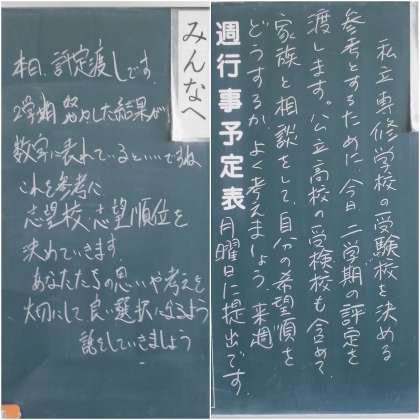 みんなへ
本日、評定渡しです
2学期 努力した結果が
数字に表れているといいですね
これを参考に
志望校、志望順位を
決めていきます。
あなたたちの思いや考えを
大切にして良い選択になるよう
話をしていきましょう
私立専修学校の受験校を決める
参考とするために、今日、二学期の評定を
渡します。公立高校の受検校も含めて、
家族と相談をして、自分の希望順を
どうするか、よく考えましょう。来週
月曜日に提出です。
週行事予定表